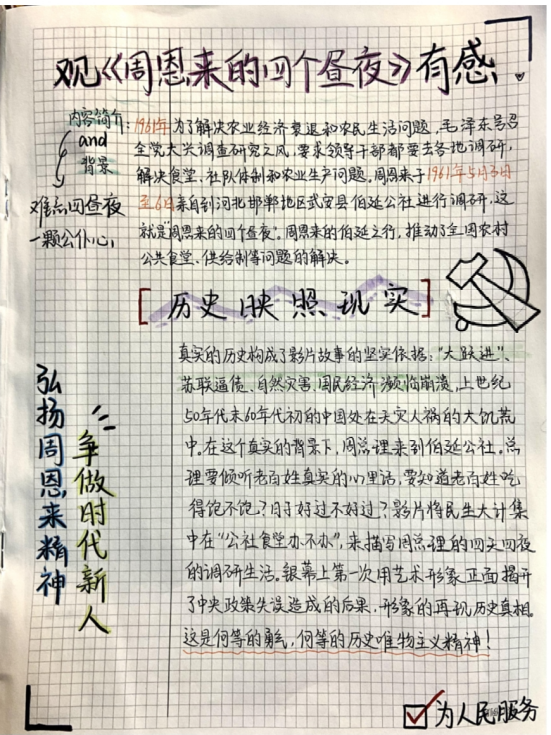 观《周恩来的四个昼夜》有感
内容简介
and
背景
难忘四昼夜
一颗公仆心
1961年为了解决农业经济衰退和农民生活问题,毛泽东号召
全党大兴调查研究之风,要求领导干部都要去各地调研,
解决食堂、社队体制和农业生产问题。周恩来于1961年5月3日
至6日亲自到河北邯郸地区武安县伯延公社进行调研,这
就是"周恩来的四个昼夜"。周恩来的伯延之行,推动了全国农村
公共食堂、供给制等问题的解决。
[历史映照现实]
真实的历史构成了影片故事的坚实依据:"大跃进"、
苏联逼债、自然灾害,国民经济濒临崩溃,上世纪
50年代末60年代初的中国处在天灾人祸的大饥荒
中。在这个真实的背景下,周总理来到伯延公社。总
理要倾听老百姓真实的心里话,要知道老百姓吃
得饱不饱?日子好过不好过?影片将民生大计集
中在"公社食堂办不办",来描写周总理的四天四夜
的调研生活。银幕上第一次用艺术形象正面揭开
了中央政策失误造成的后果,形象的再现历史真相。
这是何等的勇气,何等的历史唯物主义精神!
弘扬周恩来精神
争做时代新人
为人民服务